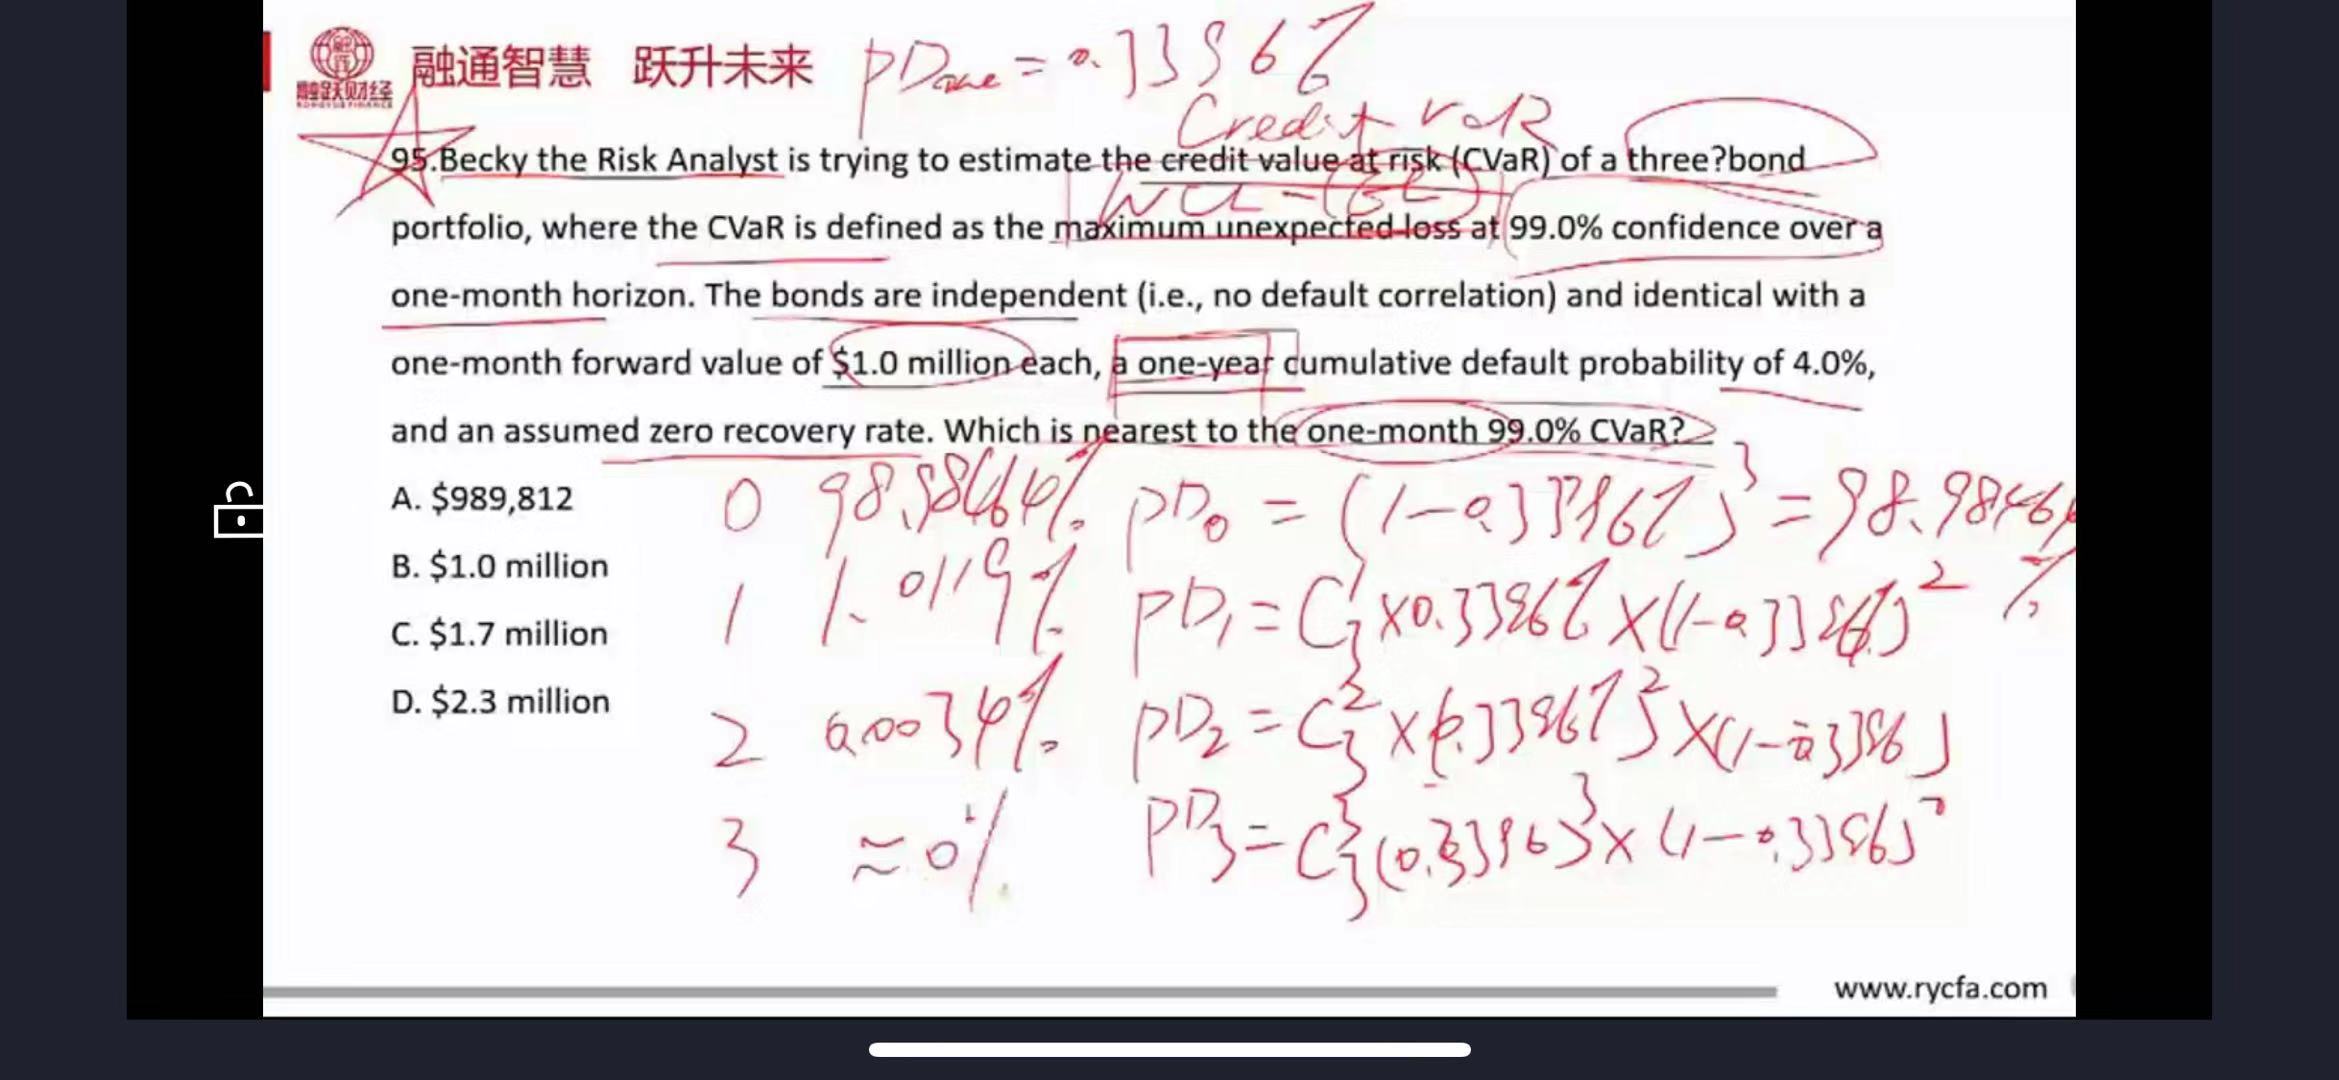 融通智慧 跃升未来
融跃财经
RONGYUE FINANCE
PD
Credit VaR
95.Becky the Risk Analyst is trying to estimate the credit value at risk (CVaR) of a three?bond
WCL-(EL)
portfolio, where the CVaR is defined as the maximum unexpected loss at 99.0% confidence over a
one-month horizon. The bonds are independent (i.e., no default correlation) and identical with a
one-month forward value of $1.0 million each, a one-year cumulative default probability of 4.0%,
and an assumed zero recovery rate. Which is nearest to the one-month 99.0% CVaR?
A. $989,812
B. $1.0 million
C. $1.7 million
D. $2.3 million
0 98.98464%
1 1.0119%
2 0.0034%
3 ≈0%
www.rycfa.com